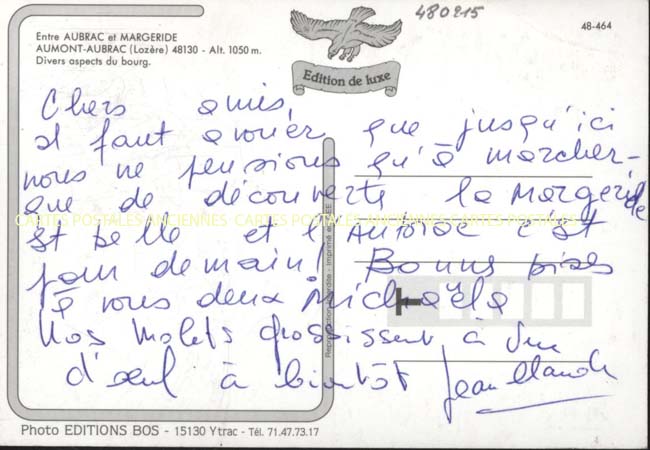 480215
48-464
Entre AUBRAC et MARGERIDE
AUMONT-AUBRAC (Lozère) 48130 - Alt. 1050 m.
Divers aspects du bourg.
Edition de luxe
Chers amis,
Il faut avouer que jusqu'ici
nous ne pensions qu'à marcher -
que de découverte la Margeride
est belle et l'Aubrac c'est
pour demain! Bonnes bises
à vous deux Michaela
Nos molets grossissent à vue
d'œuil à bientôt Jean Claude
CARTES POSTALES ANCIENNES CARTES POSTALES ANCIENNES CARTES POSTALES
Reproduction interdite - Imprimé en CEE
Photo EDITIONS BOS - 15130 Ytrac - Tél. 71.47.73.17